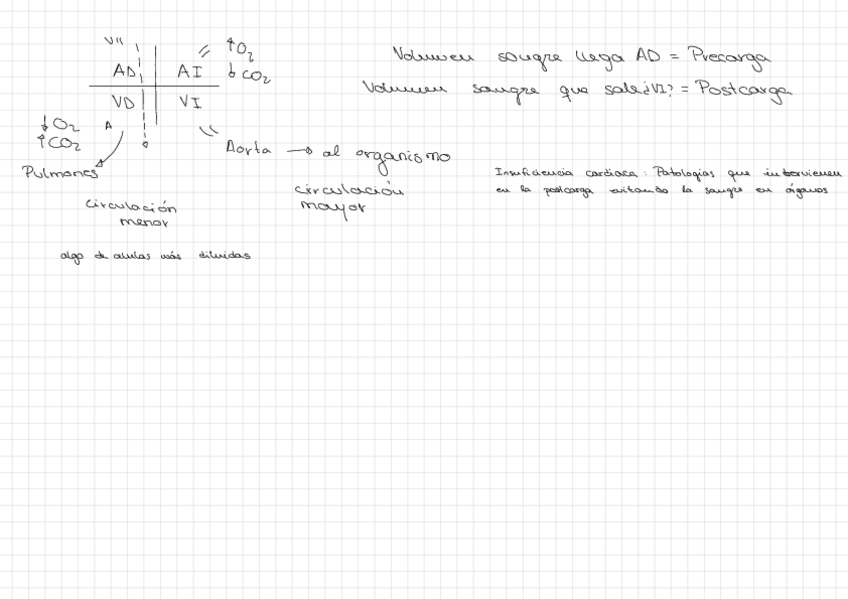 ↑O₂
AD AI ↓CO₂
VD VI
↓O₂ A
↑CO₂
Pulmones
Aorta → al organismo
circulación
menor
circulación
mayor
algo de más diluidas
Volumen sangre llega AD = Precarga
Volumen sangre que sale ¿VI? = Postcarga
Insuficiencia cardiaca: Patologías que intervienen
en la postcarga evitando la sangre en órganos